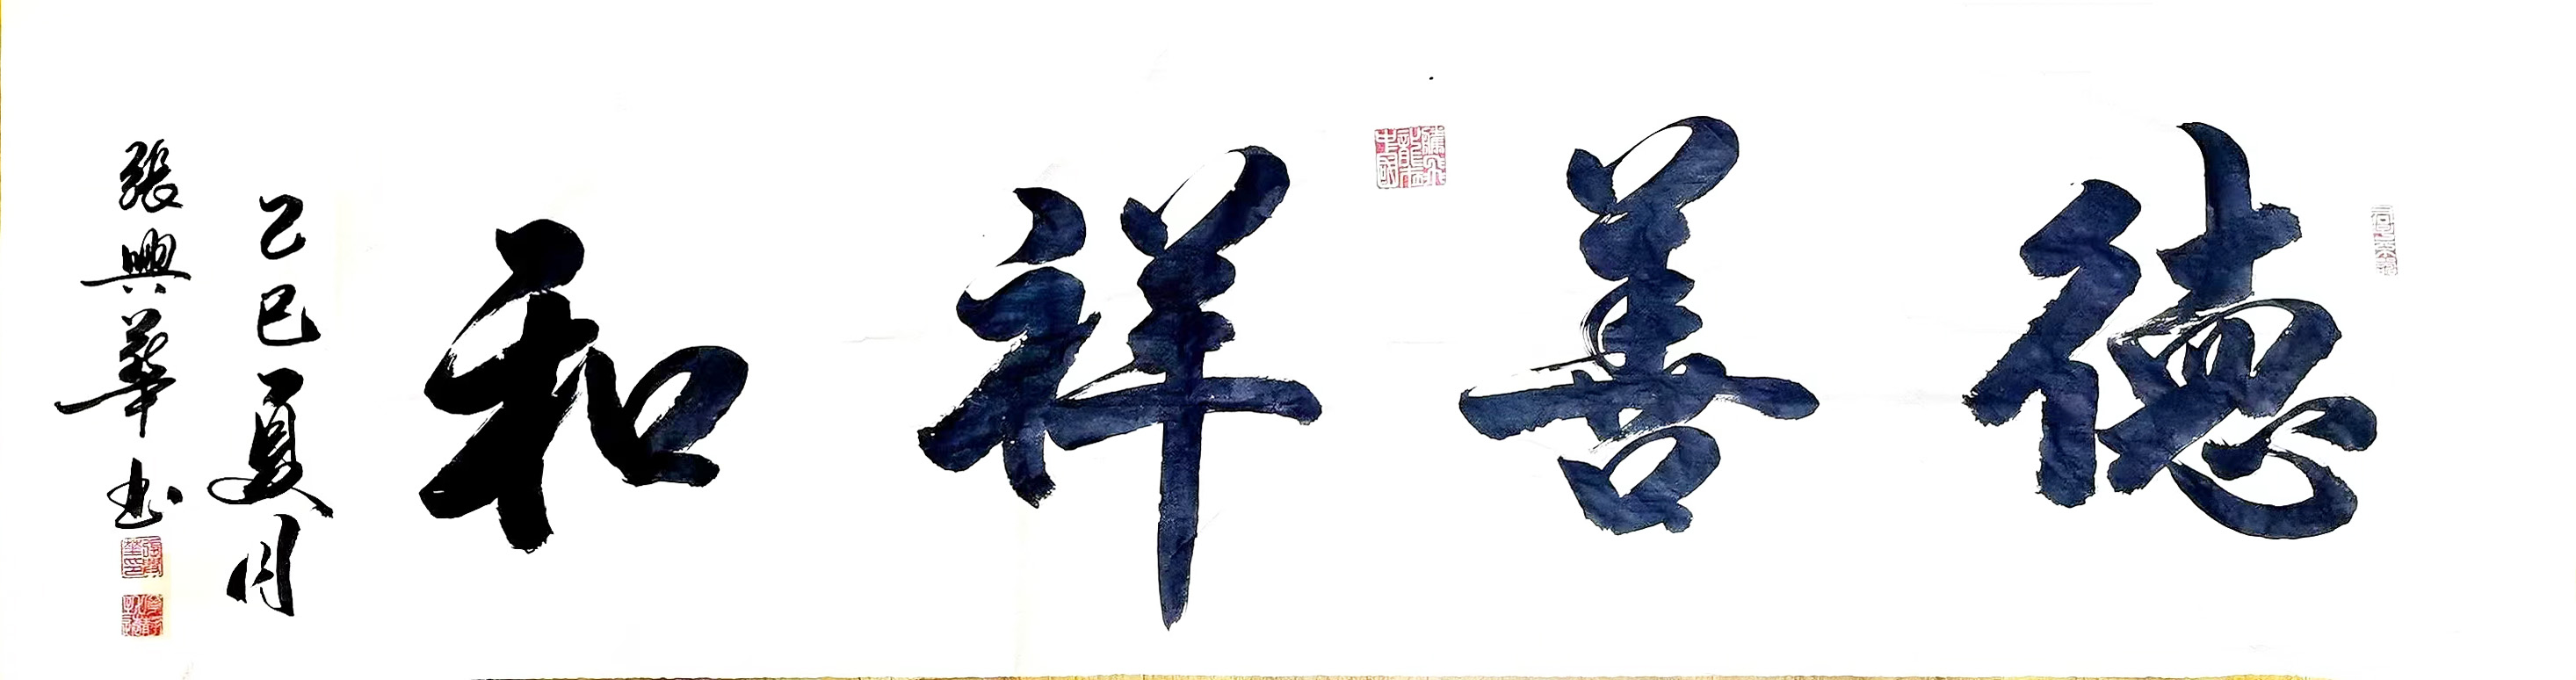 德善祥和
乙巳夏月
張興華书